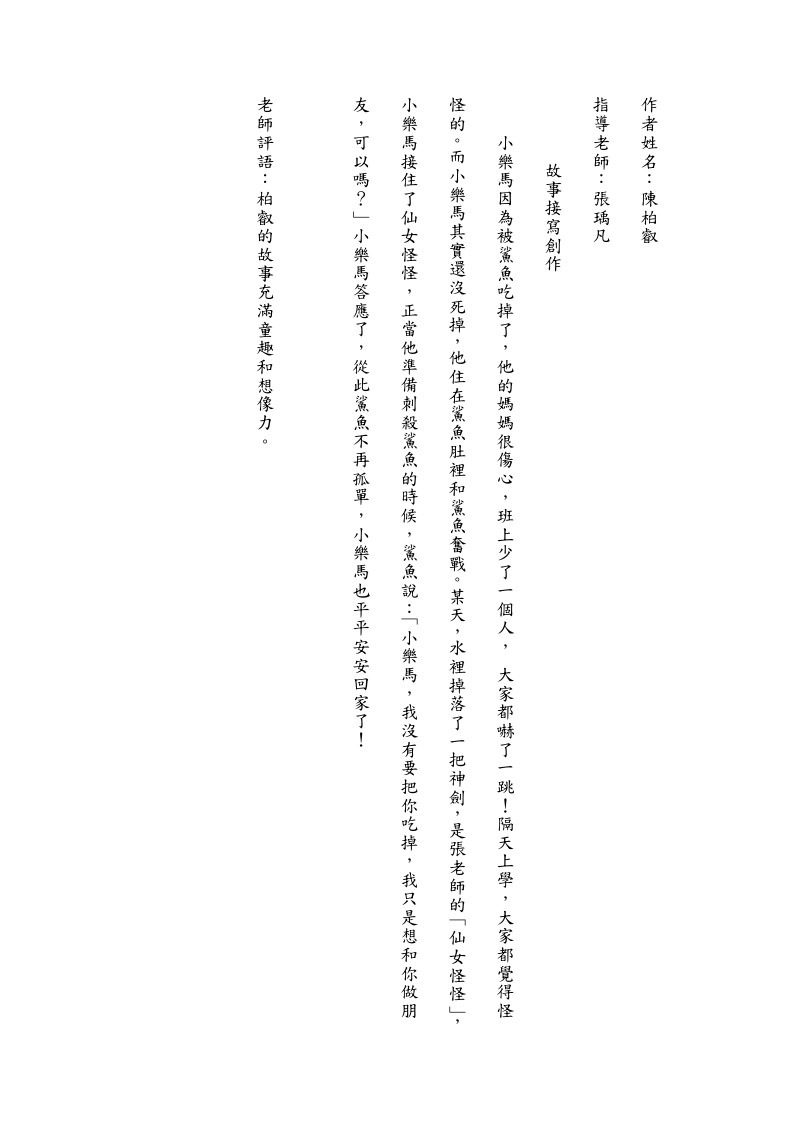 作者姓名：陳柏叡
指導老師：張瑀凡
故事接寫創作
小樂馬因為被鯊魚吃掉了，他的媽媽很傷心，班上少了一個人， 大家都嚇了一跳！隔天上學，大家都覺得怪
怪的。而小樂馬其實還沒死掉，他住在鯊魚肚裡和鯊魚奮戰。某天，水裡掉落了一把神劍，是張老師的「仙女怪怪」，
小樂馬接住了仙女怪怪，正當他準備刺殺鯊魚的時候，鯊魚說：「小樂馬，我沒有要把你吃掉，我只是想和你做朋
友，可以嗎？」小樂馬答應了，從此鯊魚不再孤單，小樂馬也平平安安回家了！
老師評語：柏叡的故事充滿童趣和想像力。